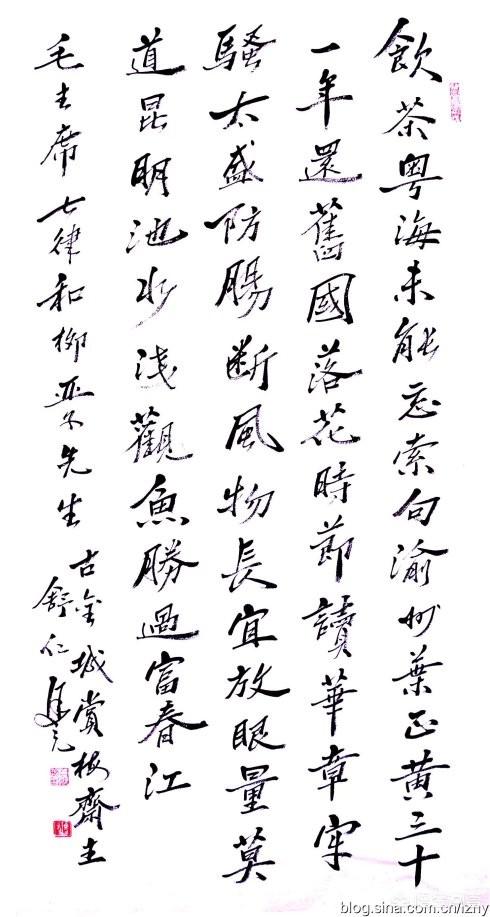 飲茶粤海未能忘索句渝州葉正黄三十
一年還舊國落花時節讀華章牢
騷太盛防腸斷風物長宜放眼量莫
道昆明池水淺觀魚勝過富春江
毛主席七律和柳亞子先生
古金城賞梅齋主
舒仁
blog.sina.com.cn/lzhy